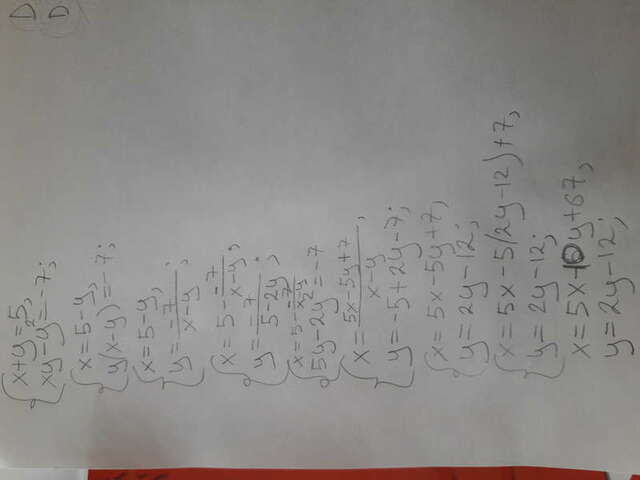 D
D
{x+y=5,
xy-y²=-7;
{x=5-y,
y(x-y)=-7;
{x=5-y,
y=-7/(x-y);
{x=5-(-7)/(x-y);
y=-7/(5-2y);
5y-2y=-7
{x=(5x-5y+7)/(x-y),
y=-5+2y-7;
{x=5x-5y+7,
y=2y-12;
{x=5x-5(2y-12)+7,
y=2y-12;
x=5x-10y+67,
y=2y-12;